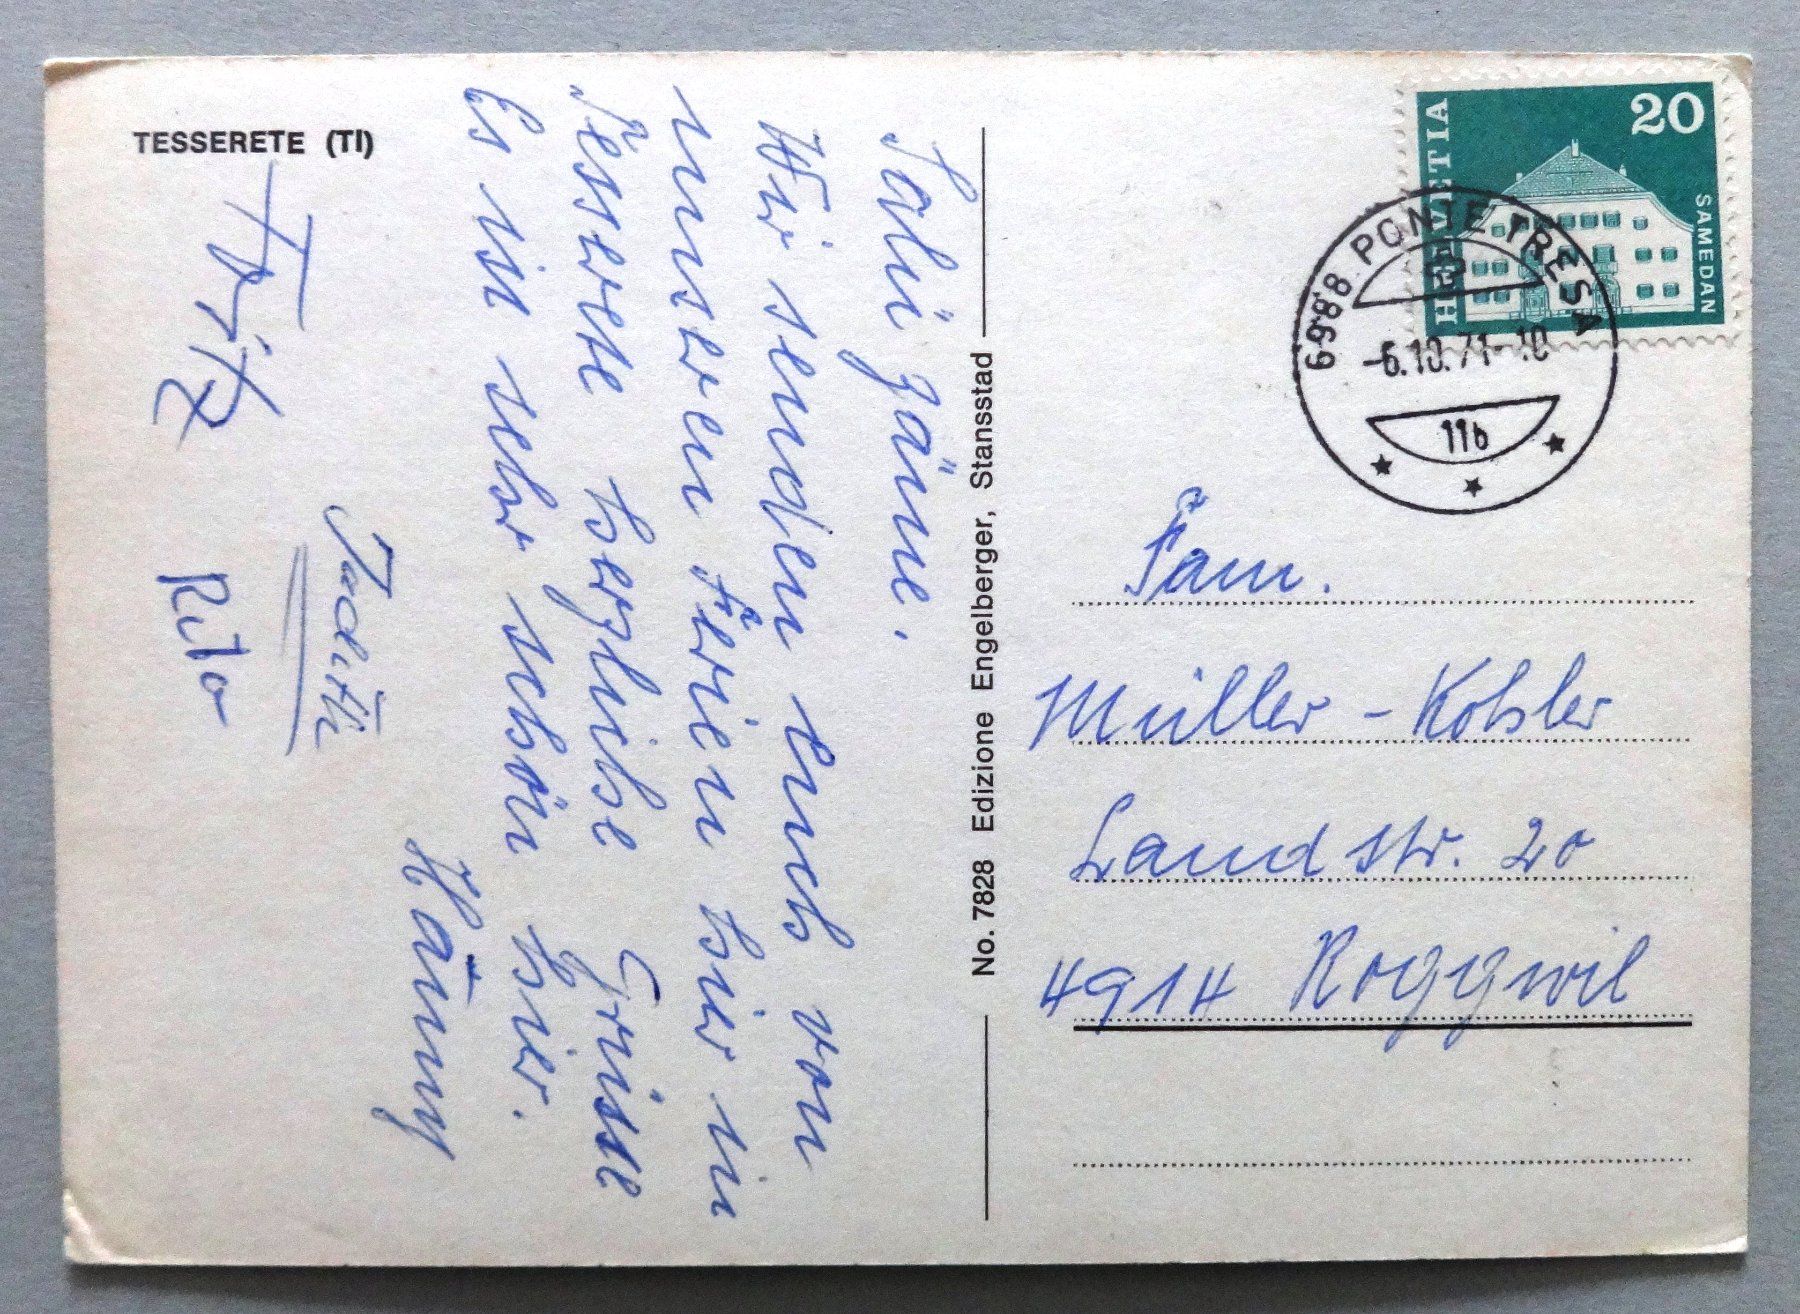 TESSERETE (TI)
Salü zäme.
Wir senden euch von
unseren Ferien hier in
Tesserete herzliche Grüsse
Es ist sehr schön hier.
Hänny
Fritz
Rita
No. 7828 Edizione Engelberger, Stansstad
HELVETIA
20
SAMEDAN
6988 PONTE TRESA
-6.10.71-10
11b
Fam.
Müller - Kohler
Landstr. 20
4914 Roggwil